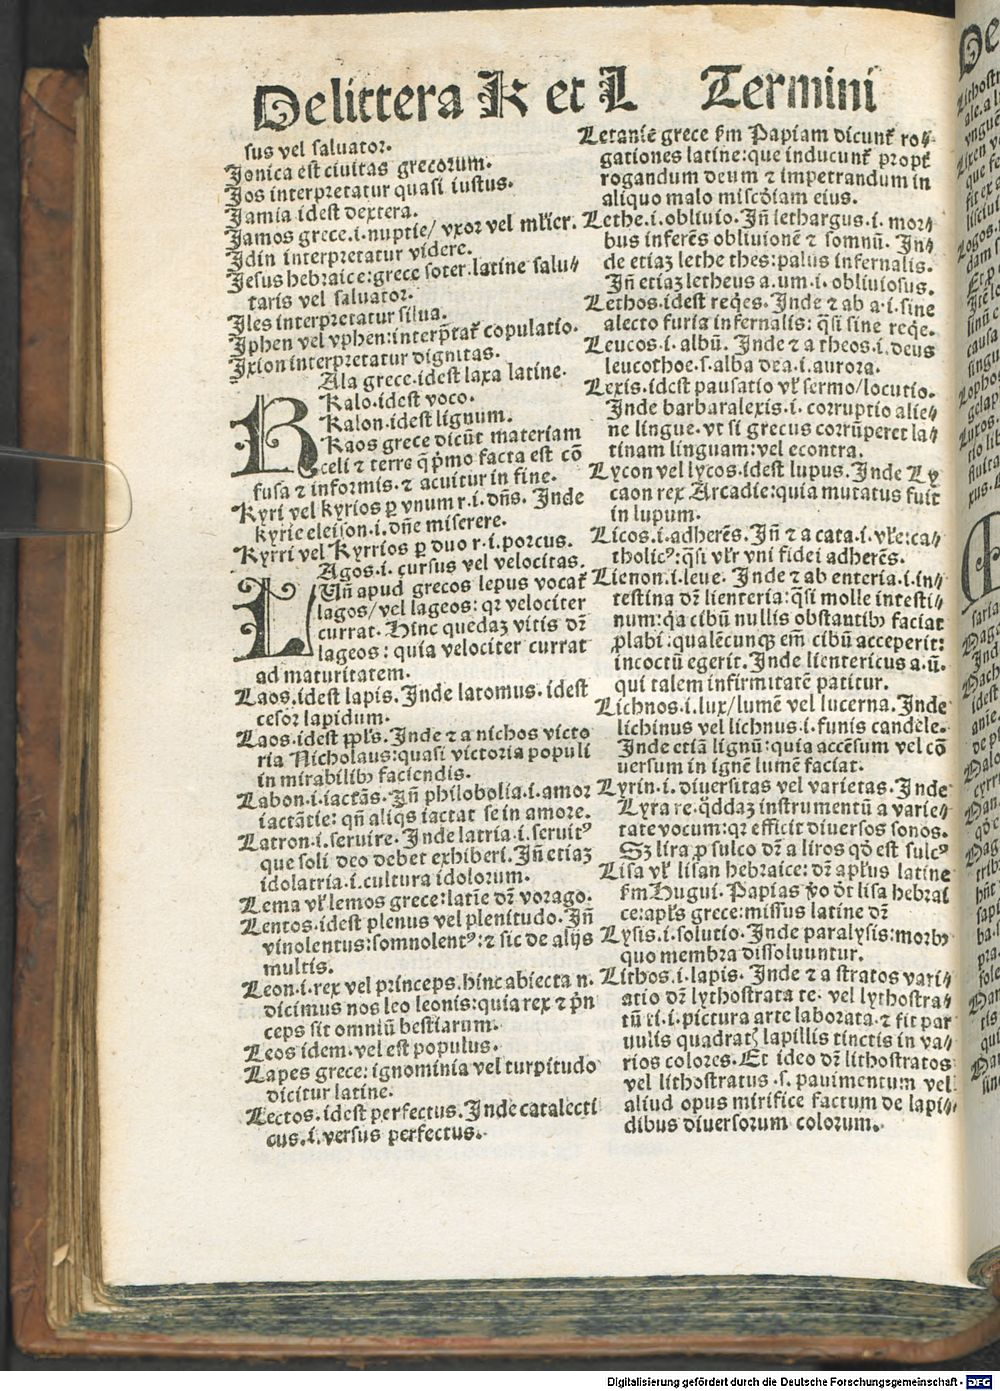 De littera K et L Termini
sus vel saluator.
Jonica est ciuitas grecorum.
Jos interpretatur quasi iustus.
Jamia idest dextera.
Jamos grece .i. nuptie/ vxor vel mulier.
Jdin interpretatur videre.
Jesus hebraice: grece soter. latine salu⸗
taris vel saluator.
Jles interpretatur silua.
Jphen vel vphen: interp̃tat̃ copulatio.
Jxion interpretatur dignitas.
KAla grece .idest laxa latine.
Kalo .idest voco.
Kalon .idest lignum.
Kaos grece dicũt materiam
celi ⁊ terre q̃ p̃mo facta est cõ
fusa ⁊ informis. ⁊ acuitur in fine.
Kyri vel kyrios ꝑ vnum r .i. dñs. Jnde
kyrie eleison .i. dñe miserere.
Kyrri vel Kyrrios ꝑ duo r .i. porcus.
LAgos .i. cursus vel velocitas.
Uñ apud grecos lepus vocat̃
lagos/ vel lageos: qꝛ velociter
currat. Hinc quedaꝫ vitis dꝛ̃
lageos: quia velociter currat
ad maturitatem.
Laos .idest lapis. Jnde latomus. idest
cesor lapidum.
Laos .idest ppl̃s. Jnde ⁊ a nichos victo
ria Nicholaus: quasi victoria populi
in mirabilibꝰ faciendis.
Labon .i. iactãs. Jñ philobolia .i. amor
iactãtie: qñ aliqs iactat se in amore.
Latron .i. seruire. Jnde latria .i. seruitꝰ
que soli deo debet exhiberi. Jñ etiaꝫ
idolatria .i. cultura idolorum.
Lema vl̃ lemos grece: latĩe dꝛ̃ vorago.
Lentos .idest plenus vel plenitudo. Jñ
vinolentus: somnolentꝰ: ⁊ sic de alijs
multis.
Leon .i. rex vel princeps. hinc abiecta n.
dicimus nos leo leonis: quia rex ⁊ p̃n
ceps sit omniũ bestiarum.
Leos idem. vel est populus.
Lapes grece: ignominia vel turpitudo
dicitur latine.
Lectos .idest perfectus. Jnde catalecti
cus .i. versus perfectus.
Letanie grece ẜm Papiam dicunt̃ ro⸗
gationes latine: que inducunt̃ propt̃
rogandum deum ⁊ impetrandum in
aliquo malo miscd̃iam eius.
Lethe .i. obliuio. Jñ lethargus .i. mor⸗
bus inferẽs obliuionẽ ⁊ somnũ. Jn⸗
de etiaꝫ lethe thes: palus infernalis.
Jñ etiaꝫ letheus a. um .i. obliuiosus.
Lethos .idest reqes. Jnde ⁊ ab a .i. sine
alecto furia infernalis: q̃si sine reqe.
Leucos .i. albũ. Jnde ⁊ a theos .i. deus
leucothoe .s. alba dea .i. aurora.
Lexis .idest pausatio vl̃ sermo/ locutio.
Jnde barbaralexis .i. corruptio alie⸗
ne lingue. vt si grecus corrũperet la⸗
tinam linguam: vel econtra.
Lycon vel lycos .idest lupus. Jnde Ly
caon rex Arcadie: quia mutatus fuit
in lupum.
Licos .i. adherẽs. Jñ ⁊ a cata .i. vl̃e: ca⸗
tholicꝰ: q̃si vl̃r vni fidei adherẽs.
Lienon .i. leue. Jnde ⁊ ab enteria .i. in⸗
testina dꝛ̃ lienteria: q̃si molle intesti⸗
num: q̃a cibũ nullis obstantibꝰ faciat
ꝓlabi: qualẽcunqꝫ em̃ cibũ acceperit:
incoctũ egerit. Jnde lientericus a. ũ.
qui talem infirmitatẽ patitur.
Lichnos .i. lux/ lumẽ vel lucerna. Jnde
lichinus vel lichnus .i. funis candele.
Jnde etiã lignũ: quia accẽsum vel cõ
uersum in ignẽ lumẽ faciat.
Lyrin .i. diuersitas vel varietas. Jnde
Lyra re. q̃ddaꝫ instrumentũ a varie⸗
tate vocum: qꝛ efficit diuersos sonos.
Sꝫ lira ꝓ sulco dꝛ̃ a liros qd̃ est sulcꝰ
Lisa vl̃ lisan hebraice: dꝛ̃ apl̃us latine
ẜm Hugui. Papias ṽo dꝛ̃ lisa hebrai
ce: apl̃s grece: missus latine dꝛ̃
Lysis .i. solutio. Jnde paralysis: morbꝰ
quo membra dissoluuntur.
Lithos .i. lapis. Jnde ⁊ a stratos vari⸗
atio dꝛ̃ lythostrata te. vel lythostra⸗
tũ ti .i. pictura arte laborata. ⁊ fit par
uulis quadratꝭ lapillis tinctis in va⸗
rios colores. Et ideo dꝛ̃ lithostratos
vel lithostratus .s. pauimentum vel
aliud opus mirifice factum de lapi⸗
dibus diuersorum colorum.
Digitalisierung gefördert durch die Deutsche Forschungsgemeinschaft - DFG